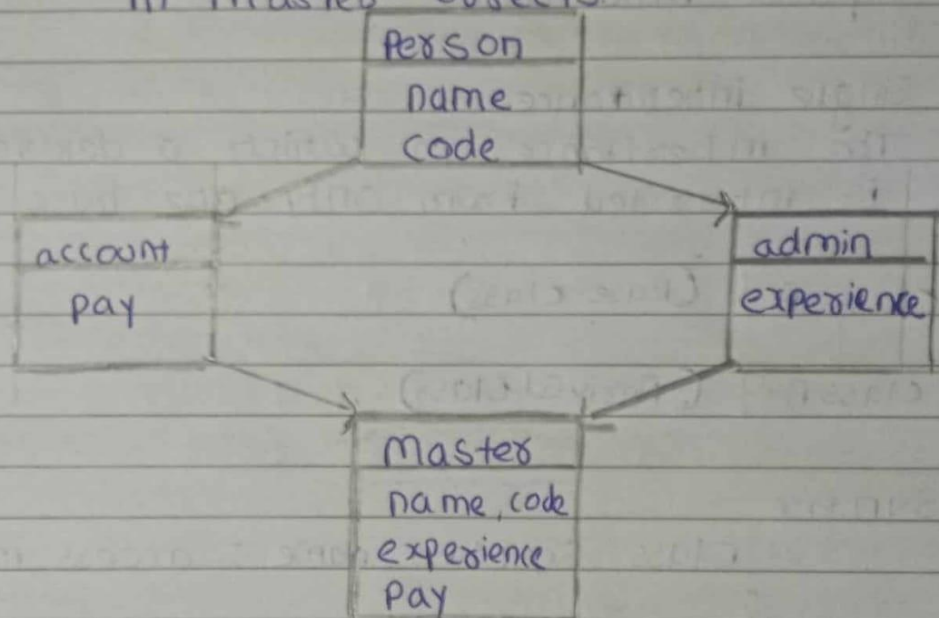 Person
name
code
account
pay
admin
experience
Master
name, code
experience
pay